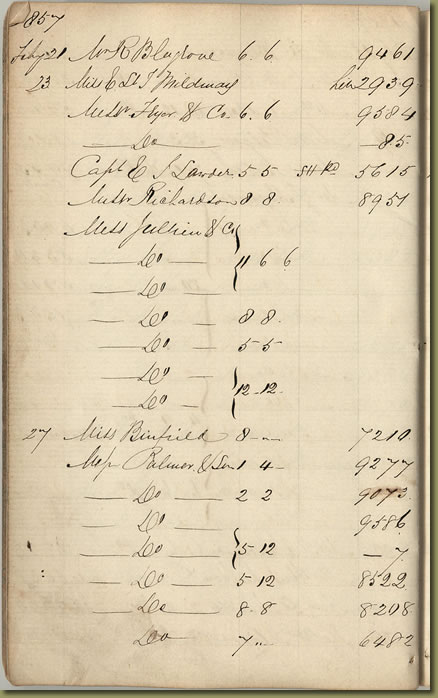 1857
Feby 21 Mr R Blagrove 6. 6 9461
23 Miss E St J Mildmay 2939
Messrs & Co. 6. 6 9584
Do — 85.
Capt E J Lawder 5 5 5615
Richardson 8 8 8951
Mess Jullien & Co
Do 11 6 6
Do
Do 8 8.
Do 5 5
Do
Do 12-12.
27 Miss Binfield 8 - 7210
Mess Palmer & Son 1 4 - 9277
Do 2 2 9073
Do 9586
Do 5 12 — 7.
Do 5 12 8522
Do 8. 8 8208
Do 7 " 6482